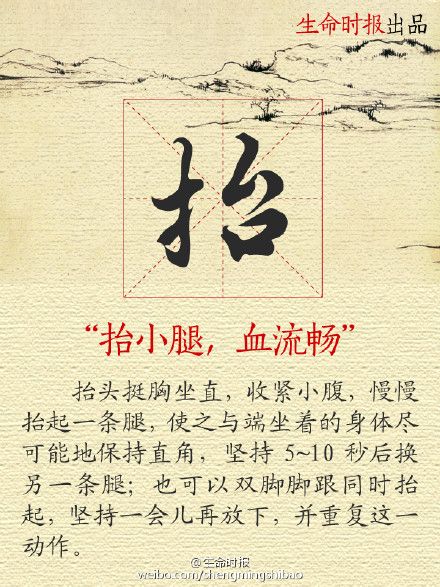 生命时报出品
抬
“抬小腿，血流畅”
抬头挺胸坐直，收紧小腹，慢慢
抬起一条腿，使之与端坐着的身体尽
可能地保持直角，坚持 5~10 秒后换
另一条腿；也可以双脚脚跟同时抬
起，坚持一会儿再放下，并重复这一
动作。
@生命时报
weibo.com/shengmingshibao